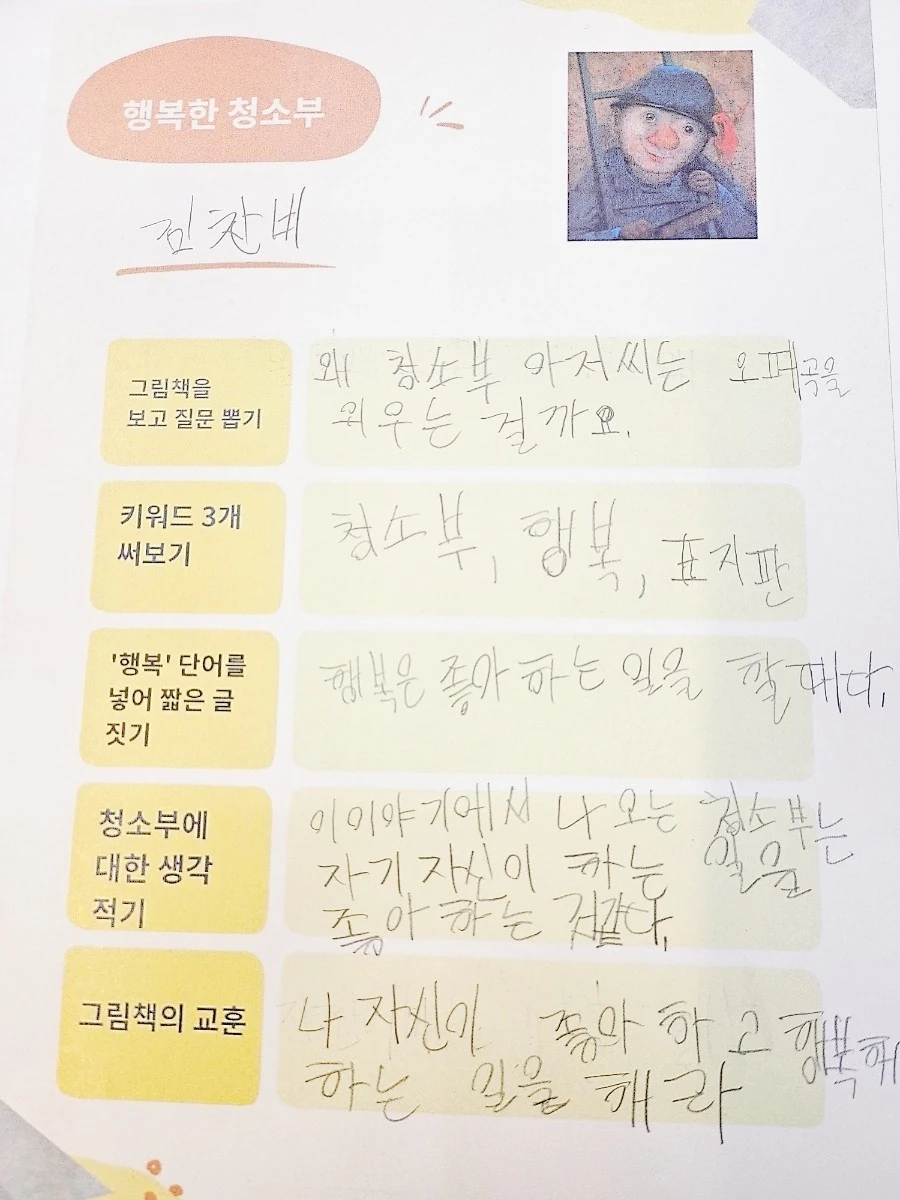 행복한 청소부
김찬비
그림책을
보고 질문 뽑기
왜 청소부 아저씨는 오페곡을
외우는 걸까요.
키워드 3개
써보기
청소부, 행복, 표지판
'행복' 단어를
넣어 짧은 글
짓기
행복은 좋아 하는 일을 할 때다.
청소부에
대한 생각
적기
이이야기에서 나 오는 청소부는
자기 자신이 하는 일을
좋아 하는 것같다.
그림책의 교훈
나 자신이 좋아 하 고 행복해
하는 일을 해 라